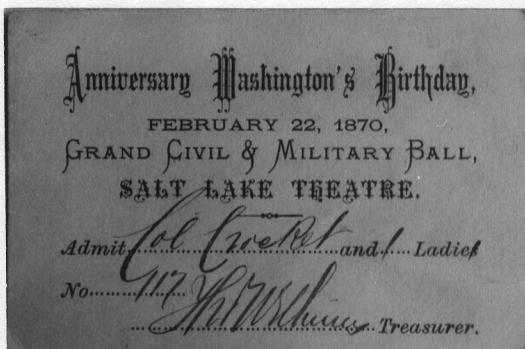 Anniversary Washington's Birthday,
FEBRUARY 22, 1870,
GRAND CIVIL & MILITARY BALL,
SALT LAKE THEATRE.
Admit Col Crocket and 1 Ladies
No 117
Treasurer.